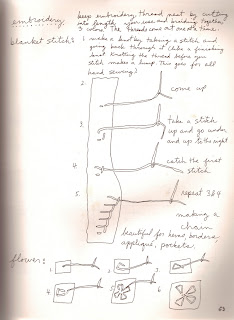 embroidery keep embroidery thread neat by cutting
into lengths you use and braiding together
3 colors. The threads come out one at a time.
blanket stitch: 1 make a knot by taking a stitch and
going back through it like a
knot. Knotting the thread before you
stitch makes a lump. This goes for all
hand sewing!
2. come up
3. take a stitch
up and go under
and up to the right
4. catch the first
stitch
5. repeat 3&4
making a
chain
beautiful for hems, borders,
appliqué, pockets.
flower:
1. 2. 3.
4. 5. 6.